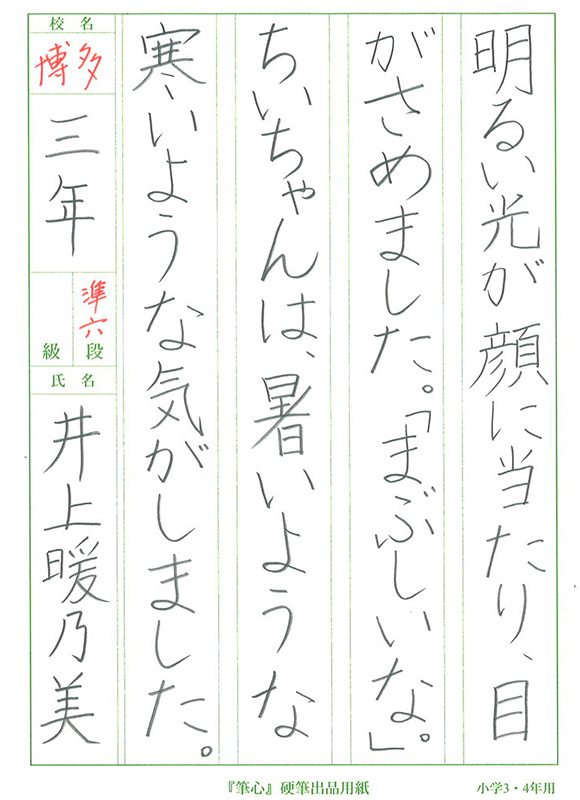 明るい光が顔に当たり、目
がさめました。「まぶしいな。」
ちいちゃんは、暑いような
寒いような気がしました。
校名
博多
三年
準六
級段
氏名
井上暖乃美
『筆心』硬筆出品用紙
小学3・4年用